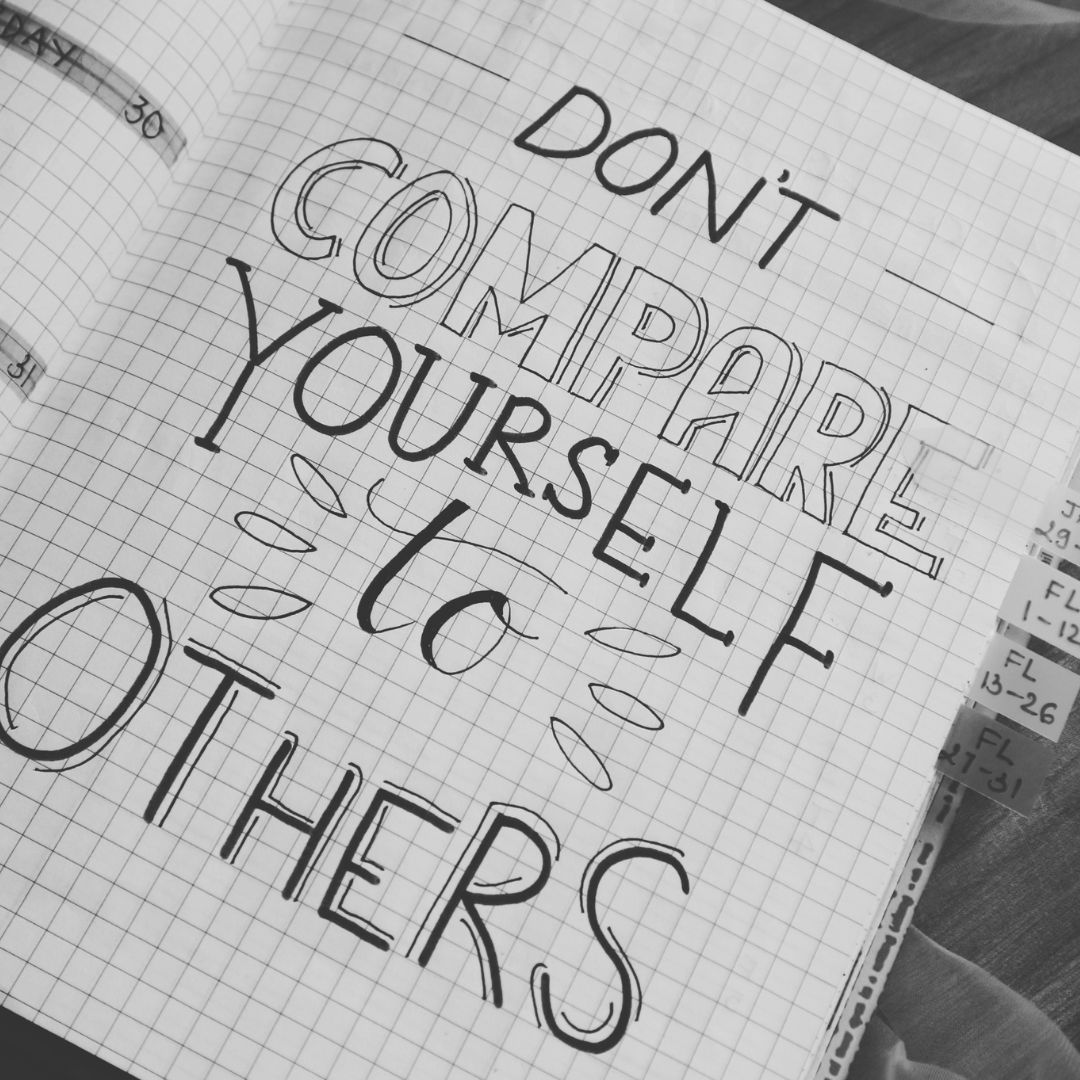 DAY
30
31
DON'T
COMPARE
YOURSELF
to
OTHERS
29-
FL
1-12
FL
13-26
FL
27-31